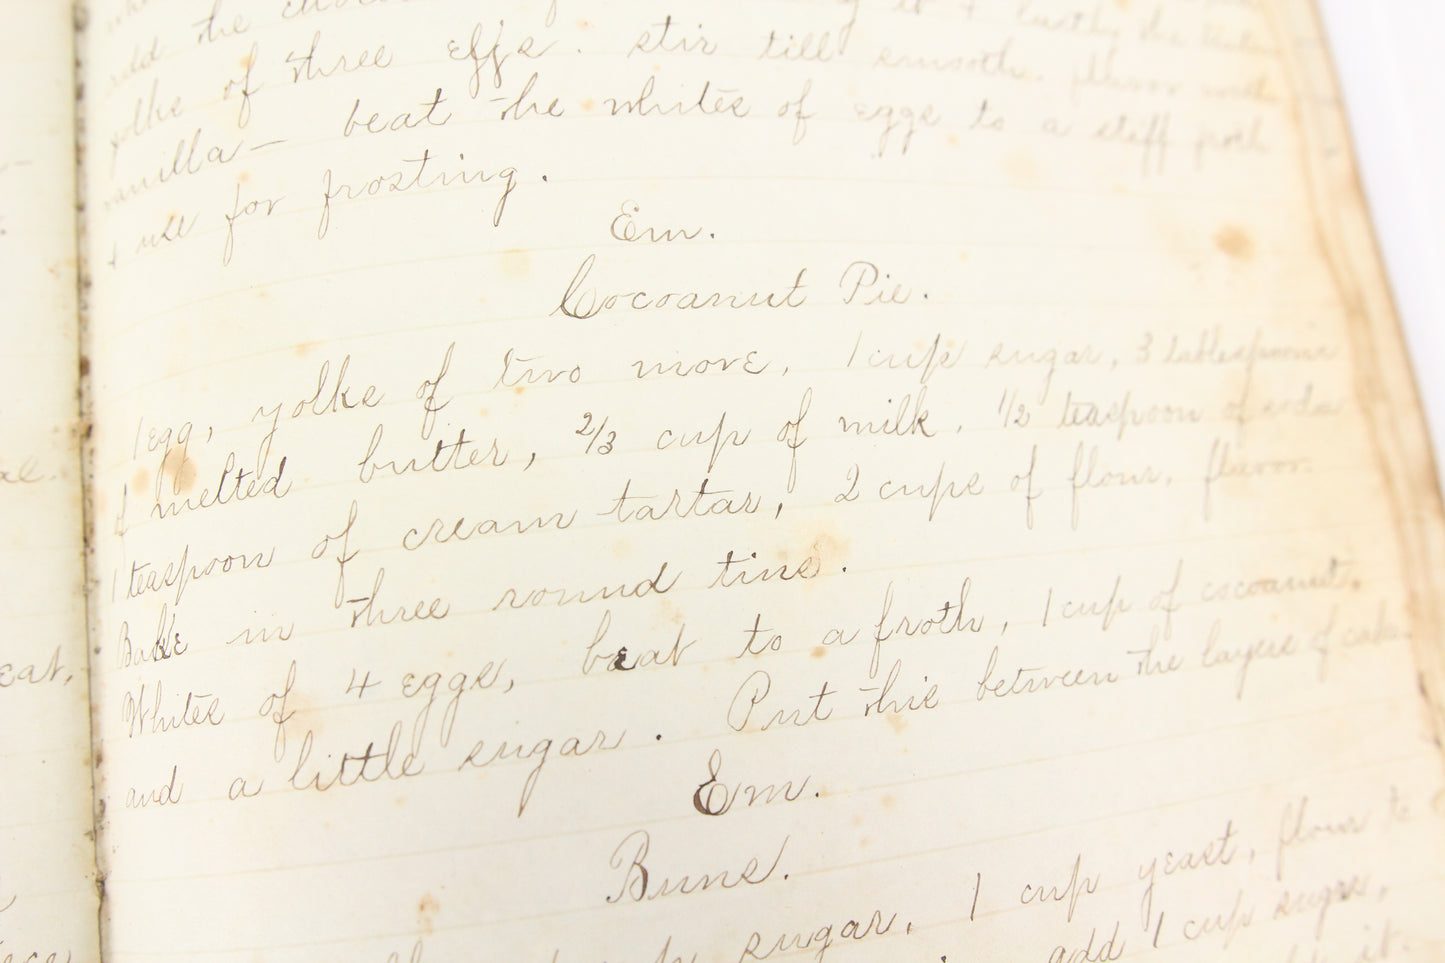 add the
yolks of three effs. stir till smooth. flavor with
vanilla — beat the whites of eggs to a stiff froth
+ use for frosting.
Em.
Cocoanut Pie.
1 egg, yolks of two more, 1 cup sugar, 3 tablespoons
of melted butter, 2/3 cup of milk, 1/2 teaspoon of soda
1 teaspoon of cream tartar, 2 cups of flour, flavor.
Bake in three round tins.
Whites of 4 eggs, beat to a froth, 1 cup of cocoanut,
and a little sugar. Put this between the layers of cake.
Em.
Buns.
sugar, 1 cup yeast, flour to
add 1 cup sugar,
it.
eat,